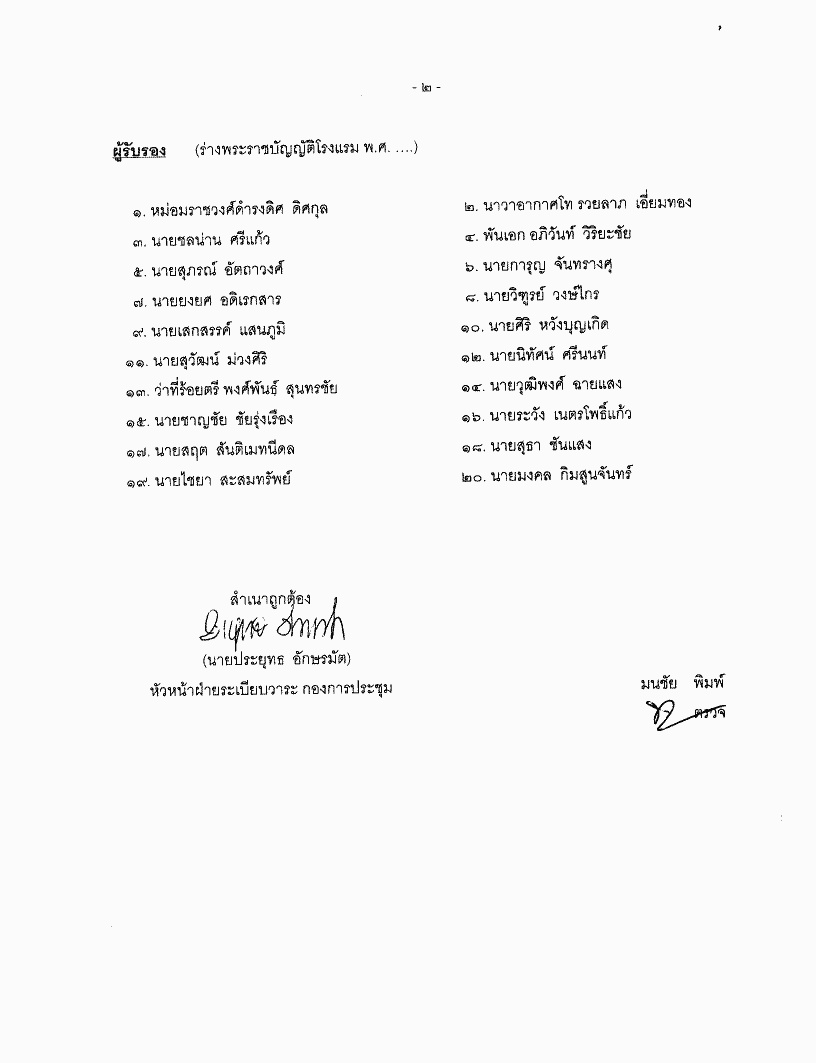 - ๒ -
ผู้รับรอง (ร่างพระราชบัญญัติโรงแรม พ.ศ. ....)
๑. หม่อมราชวงศ์ดำรงดิศ ดิศกุล ๒. นาวาอากาศโท รวยลาภ เอี่ยมทอง
๓. นายชลน่าน ศรีแก้ว ๔. พันเอก อภิวันท์ วิริยะชัย
๕. นายสุภรณ์ อัตถาวงศ์ ๖. นายการุญ จันทรางศุ
๗. นายยงยศ อดิเรกสาร ๘. นายวิฑูรย์ วงษ์ไกร
๙. นายเสกสรรค์ แสนภูมิ ๑๐. นายศิริ หวังบุญเกิด
๑๑. นายสุวัฒน์ ม่วงศิริ ๑๒. นายนิทัศน์ ศรีนนท์
๑๓. ว่าที่ร้อยตรี พงศ์พันธ์ สุนทรชัย ๑๔. นายวุฒิพงศ์ ฉายแสง
๑๕. นายชาญชัย ชัยรุ่งเรือง ๑๖. นายระวัง เนตรโพธิ์แก้ว
๑๗. นายสฤต สันติเมทนีดล ๑๘. นายสุธา ชันแสง
๑๙. นายไชยา สะสมทรัพย์ ๒๐. นายมงคล กิมสูนจันทร์
สำเนาถูกต้อง
(นายประยุทธ อักษรมัต)
หัวหน้าฝ่ายระเบียบวาระ กองการประชุม
มนชัย พิมพ์
ตรวจ